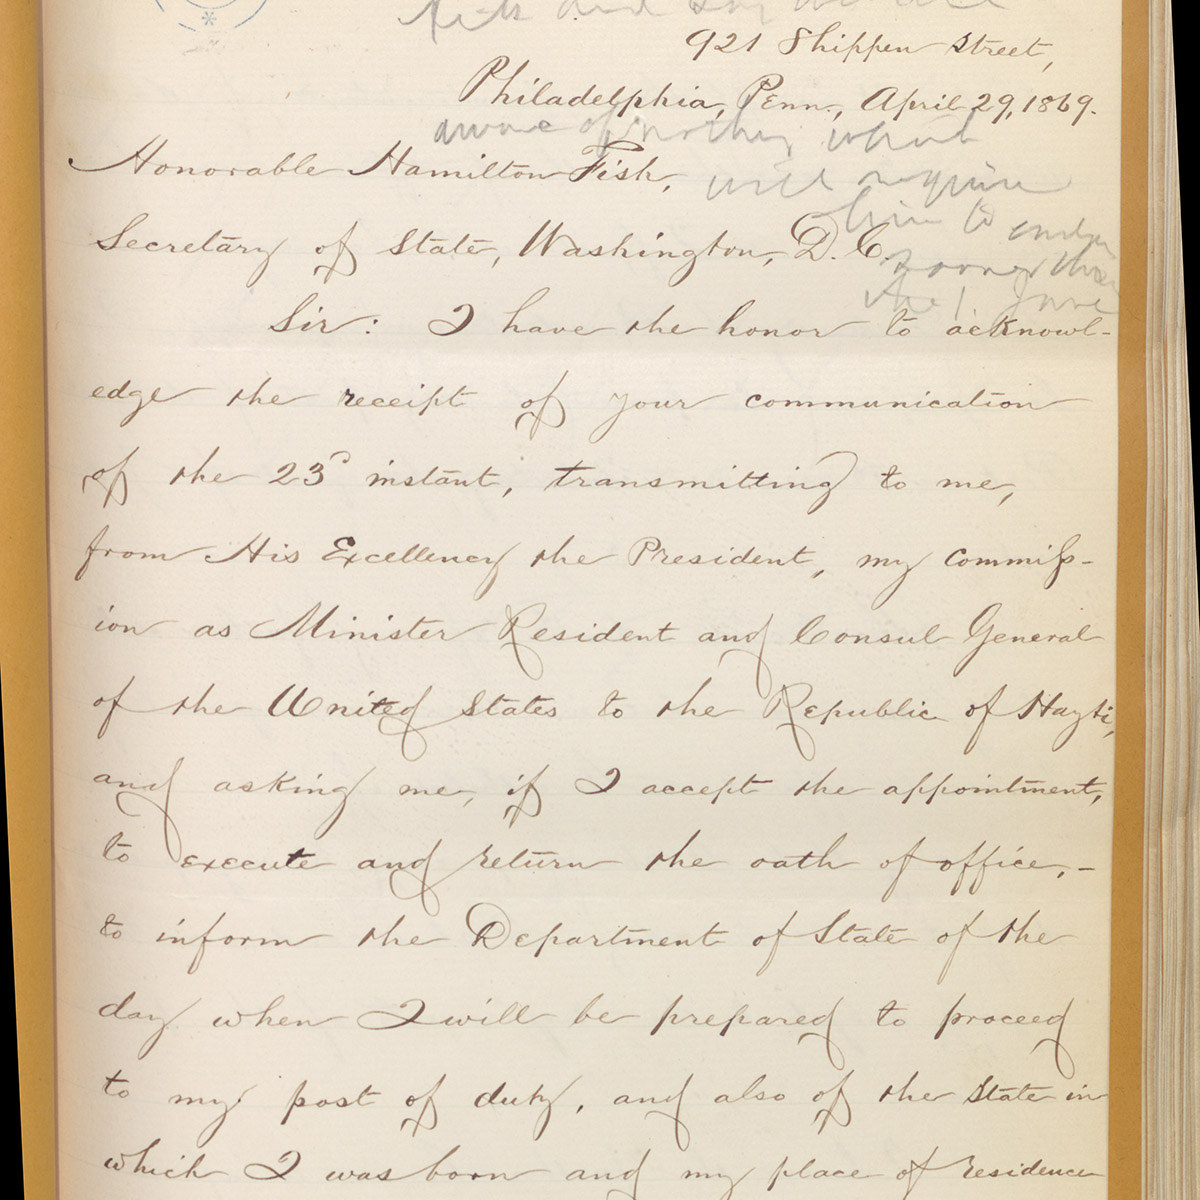 921 Shippen Street,
Philadelphia, Penn., April 29, 1869.
aware of nothing which
Honorable Hamilton Fish,
will require
him to
Secretary of State, Washington, D. C.
sooner than
the 1 June
Sir: I have the honor to acknowl-
edge the receipt of your communication
of the 23d instant, transmitting to me,
from His Excellency the President, my commiss-
ion as Minister Resident and Consul General
of the United States to the Republic of Hayti,
and asking me, if I accept the appointment,
to execute and return the oath of office, -
to inform the Department of State of the
day when I will be prepared to proceed
to my post of duty, and also of the State in
which I was born and my place of residence